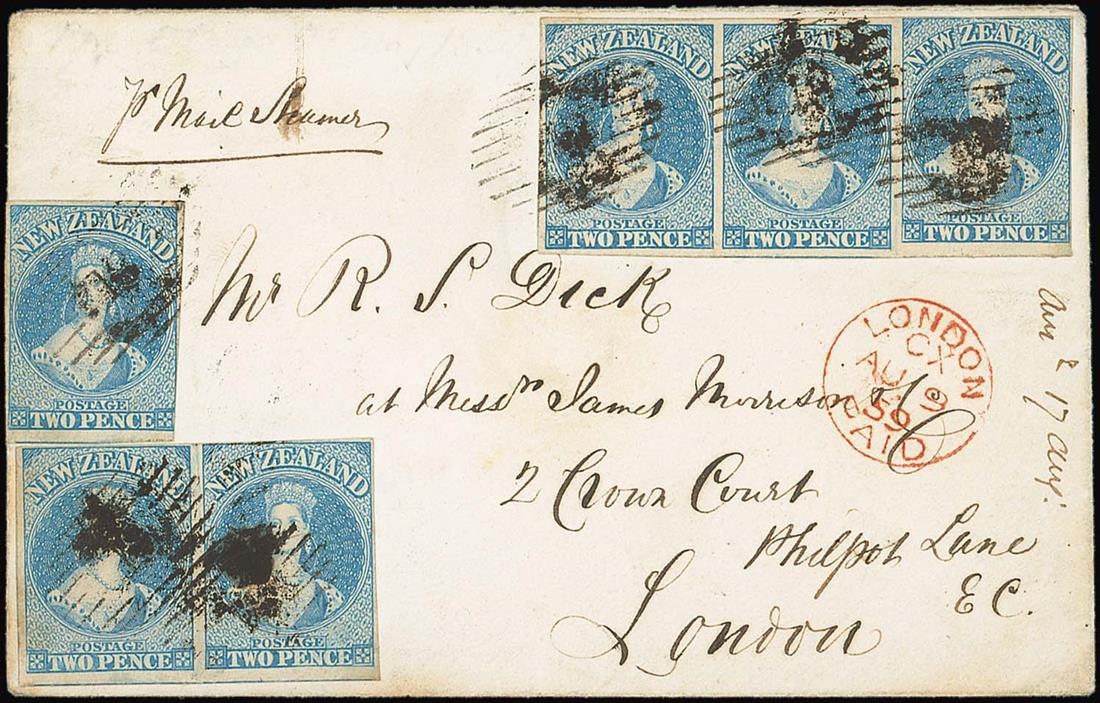 NEW ZEALAND
POSTAGE
TWO PENCE
NEW ZEALAND
POSTAGE
TWO PENCE
NEW ZEALAND
POSTAGE
TWO PENCE
pr Mail Steamer
NEW ZEALAND
POSTAGE
TWO PENCE
Mr R. S. Dick
at Messrs James Morrison & Co
2 Crown Court
Philpot Lane
London
E C.
LONDON
CX
AU 9
59
PAID
17 aug.
NEW ZEALAND
POSTAGE
TWO PENCE
NEW ZEALAND
POSTAGE
TWO PENCE